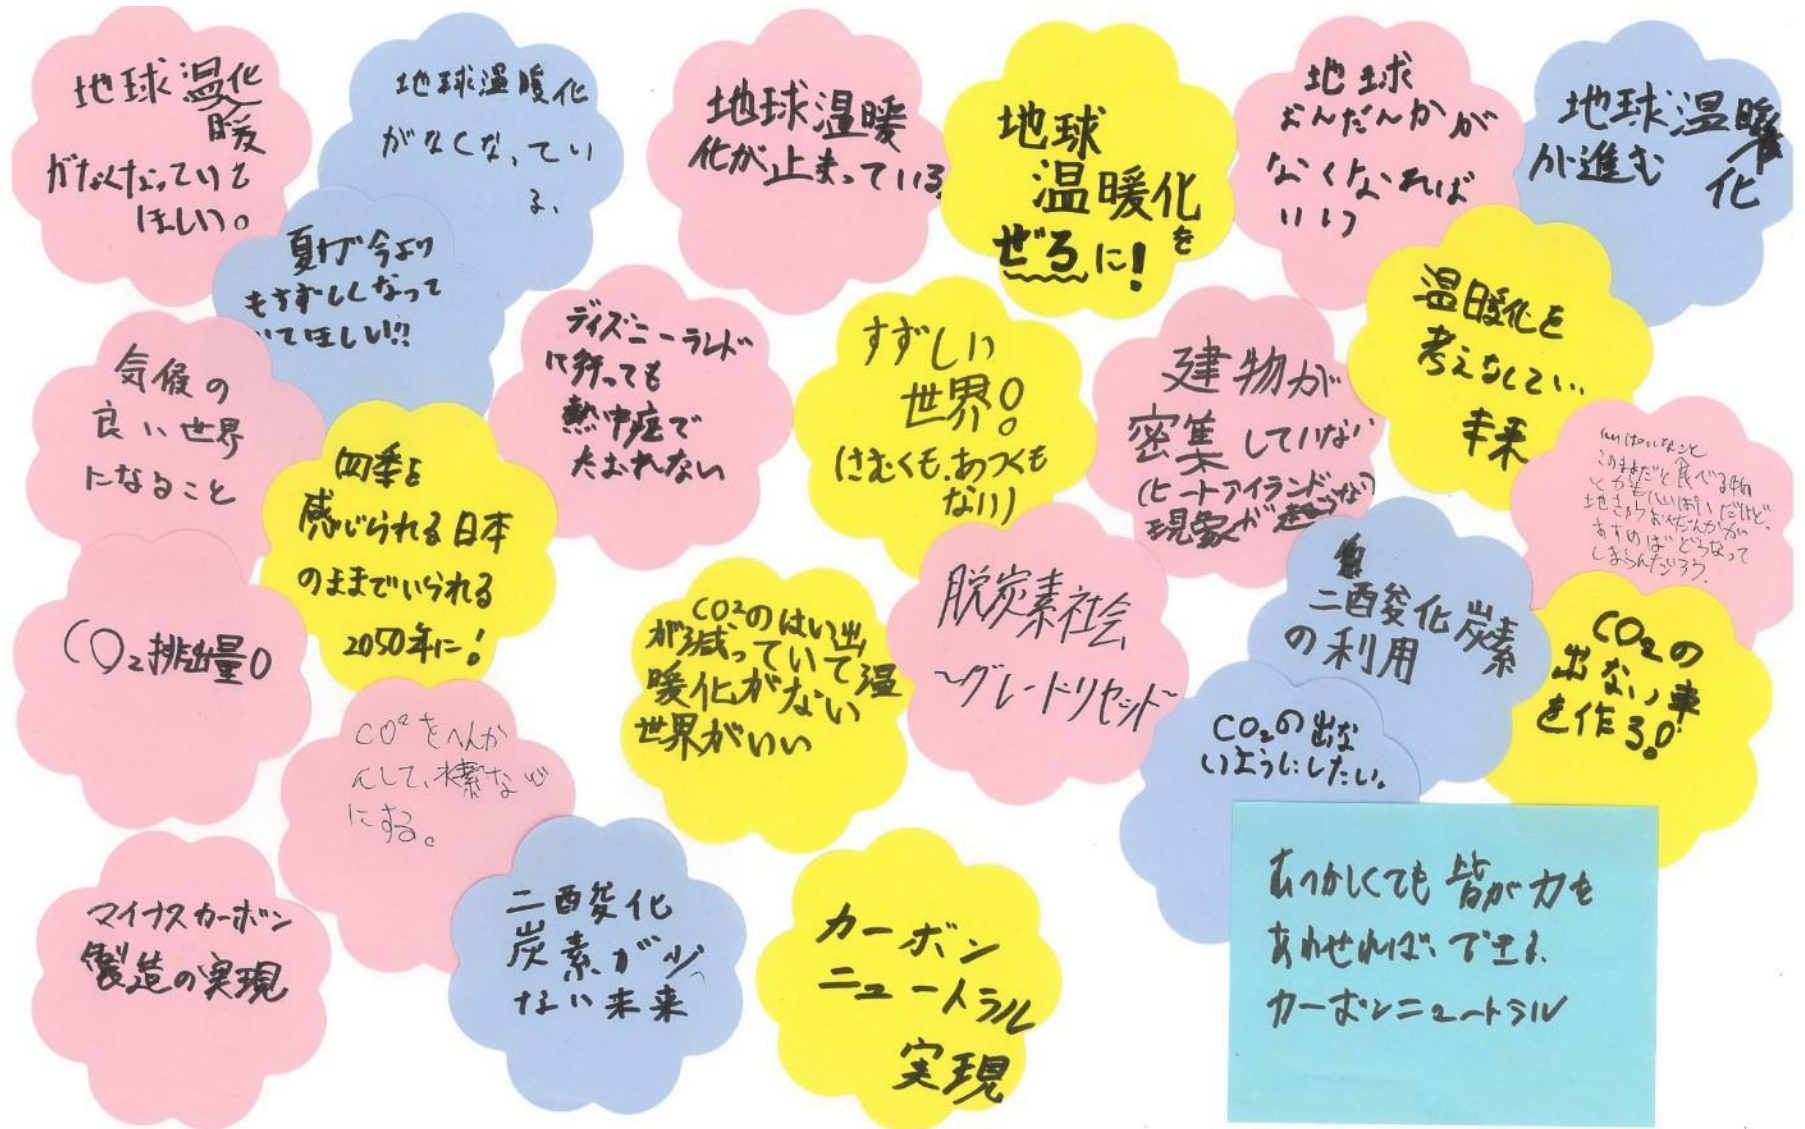 地球温暖化
がなくなっていて
ほしい。
地球温暖化
がなくなってい
る、
地球温暖
化が止まっている
地球
温暖化を
ぜろに!
地球
おんだんかが
なくなれば
いい
地球温暖
化
が進む
夏が今より
もすずしくなって
いてほしい!!
ディズニーランド
に行っても
熱中症で
たおれない
すずしい
世界!
(さむくも、あつくも
ない)
建物が
密集していない
(ヒートアイランド
現象が
温暖化を
考えなくてい、
未来
気候の
良い世界
になること
四季を
感じられる日本
のままでいられる
2050年に!
このままだと食べる物
とかもいっぱいだけど、
地きゅうおんだんかが
すすめばどうなって
しまうんだろう。
CO₂排出量0
CO²のはい出
が減っていて温
暖化がない
世界がいい
脱炭素社会
~グレートリセット~
二酸化炭素
の利用
CO₂の
出ない車
を作る!
CO²をへんか
んして、水素など
にする。
CO₂の出な
いようにしたい。
マイナスカーボン
製造の実現
二酸化
炭素が少
ない未来
カーボン
ニュートラル
実現
むつかしくても皆が力を
あわせれば、できる
カーボンニュートラル